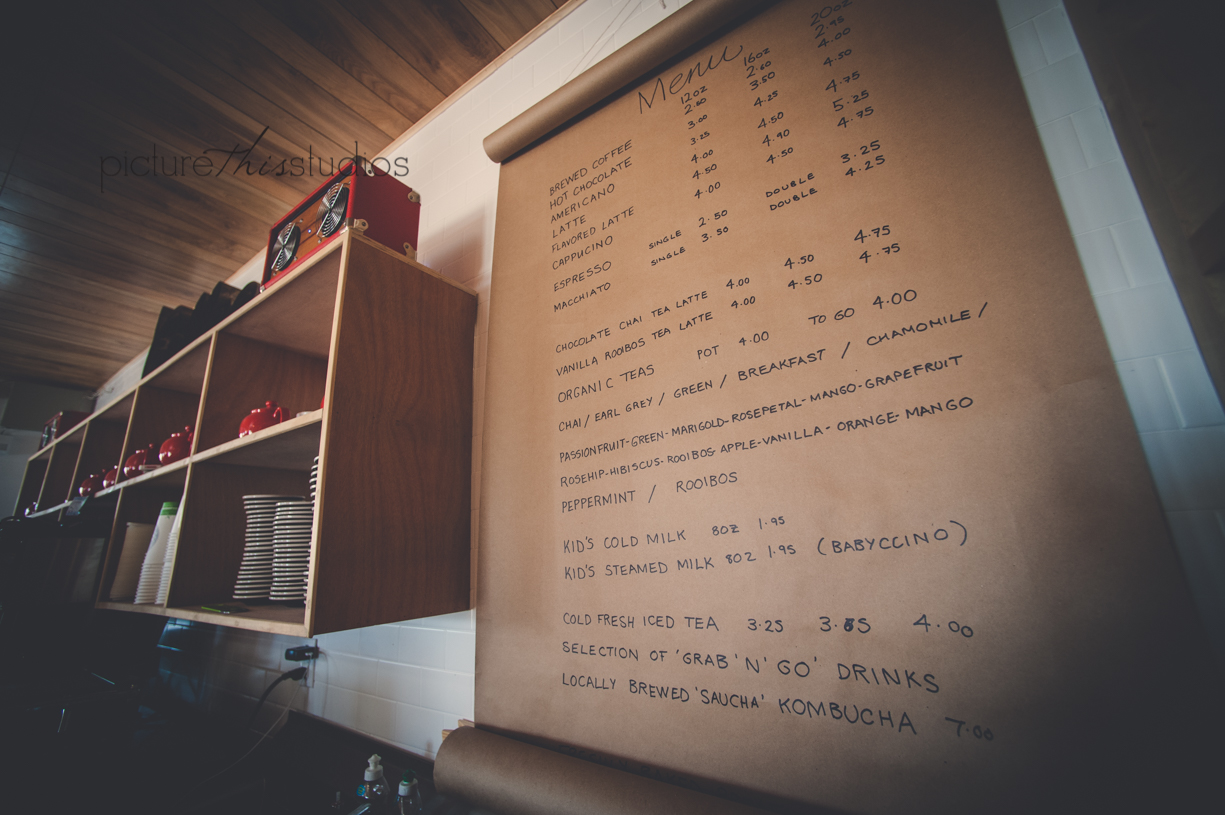 picturethisstudios
Menu
12oz 16oz 20oz
BREWED COFFEE 2.50 2.60 2.95
HOT CHOCOLATE 3.00 3.50 4.00
AMERICANO 3.25 4.25 4.50
LATTE 4.00 4.50 4.75
FLAVORED LATTE 4.50 4.90 5.25
CAPPUCINO 4.00 4.50 4.75
ESPRESSO SINGLE 2.50 DOUBLE 3.25
MACCHIATO SINGLE 3.50 DOUBLE 4.25
CHOCOLATE CHAI TEA LATTE 4.00 4.50 4.75
VANILLA ROOIBOS TEA LATTE 4.00 4.50 4.75
ORGANIC TEAS POT 4.00 TO GO 4.00
CHAI / EARL GREY / GREEN / BREAKFAST / CHAMOMILE /
PASSIONFRUIT-GREEN-MARIGOLD-ROSEPETAL-MANGO-GRAPEFRUIT
ROSEHIP-HIBISCUS-ROOIBOS-APPLE-VANILLA-ORANGE-MANGO
PEPPERMINT / ROOIBOS
KID'S COLD MILK 8OZ 1.95
KID'S STEAMED MILK 8OZ 1.95 (BABYCCINO)
COLD FRESH ICED TEA 3.25 4.00
SELECTION OF 'GRAB 'N' GO' DRINKS
LOCALLY BREWED 'SAUCHA' KOMBUCHA 7.00